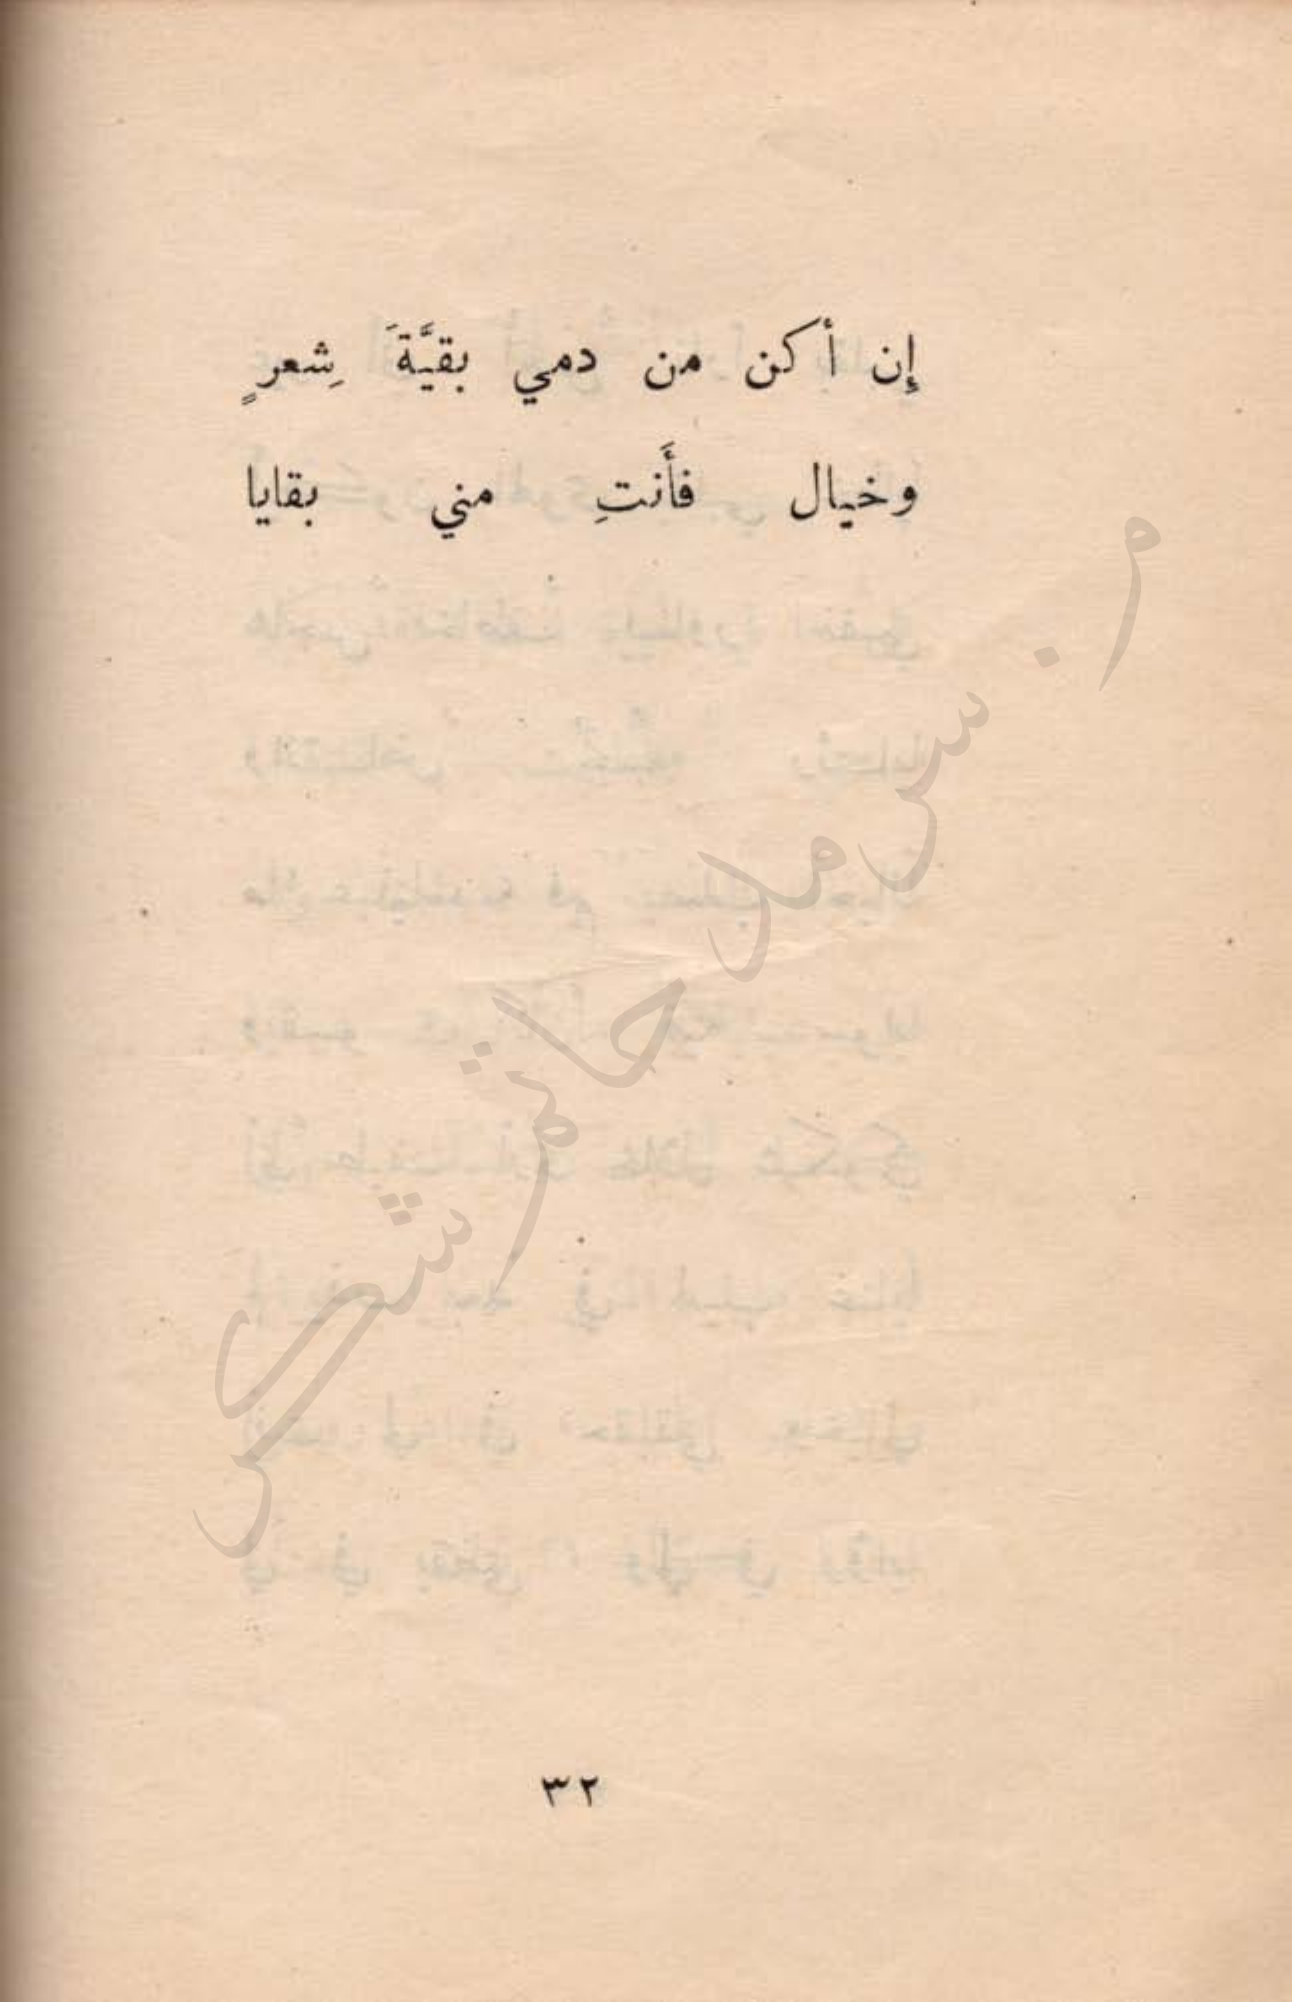 إِن أكن من دمي بقيَّةَ شِعرٍ
وخيال فأَنتِ مني بقايا
م. سرمد حاتم شكر
٣٢